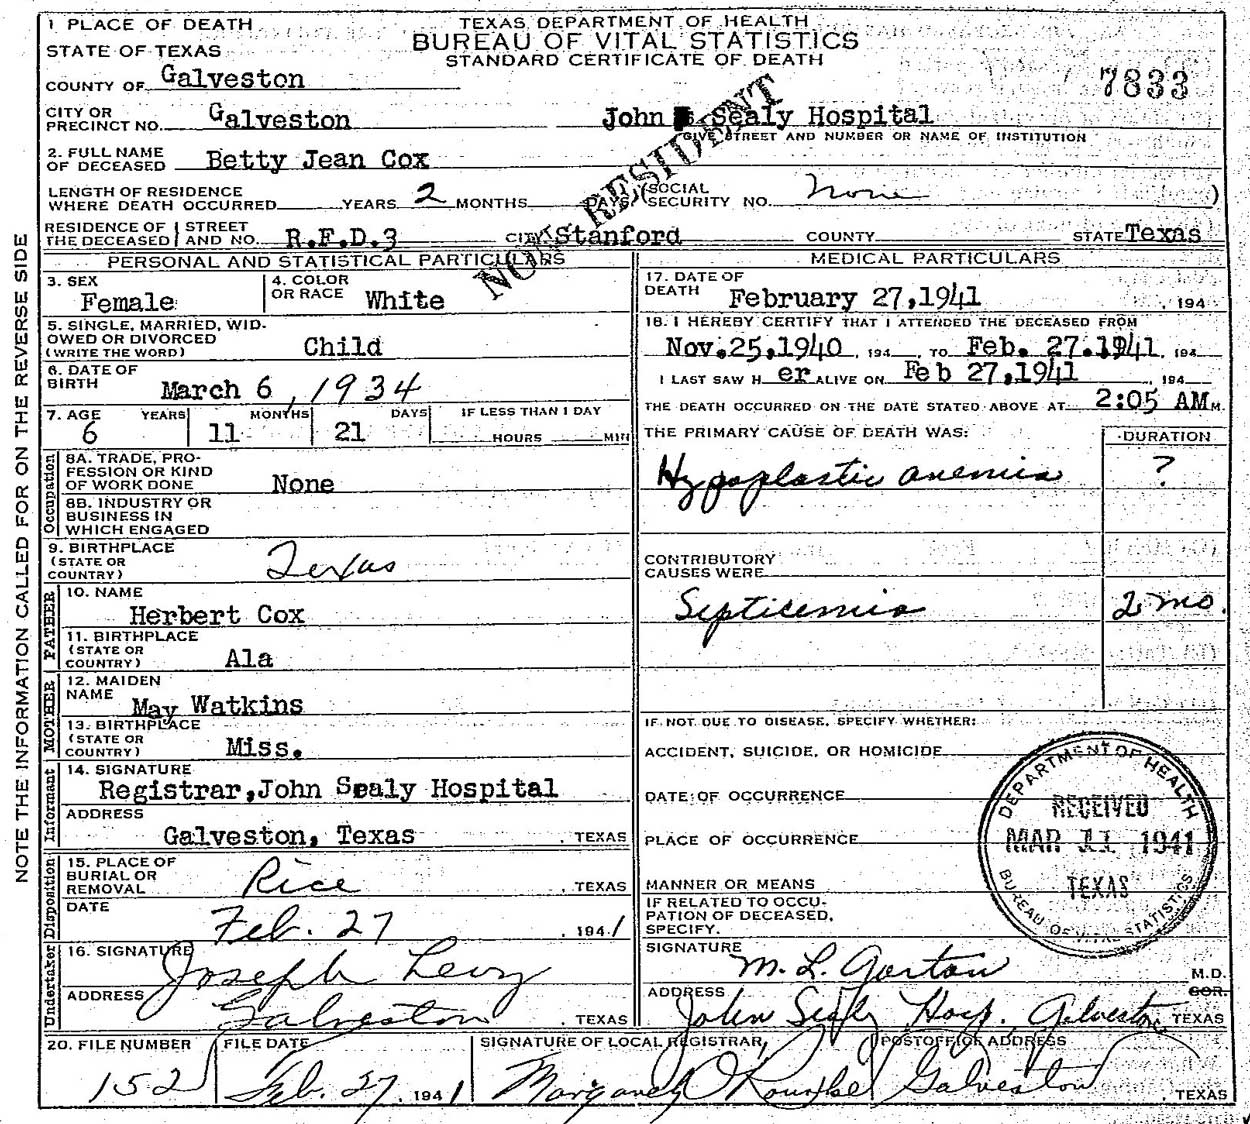 1. PLACE OF DEATH
STATE OF TEXAS
COUNTY OF Galveston
CITY OR PRECINCT NO. Galveston
TEXAS DEPARTMENT OF HEALTH
BUREAU OF VITAL STATISTICS
STANDARD CERTIFICATE OF DEATH
7833
John Sealy Hospital
GIVE STREET AND NUMBER OR NAME OF INSTITUTION
NOT RESIDENT
2. FULL NAME OF DECEASED Betty Jean Cox
LENGTH OF RESIDENCE WHERE DEATH OCCURRED YEARS 2 MONTHS DAYS (SOCIAL SECURITY NO. None )
RESIDENCE OF THE DECEASED STREET AND NO. R.F.D.3 CITY Stanford COUNTY STATE Texas
NOTE THE INFORMATION CALLED FOR ON THE REVERSE SIDE
PERSONAL AND STATISTICAL PARTICULARS
3. SEX Female
4. COLOR OR RACE White
5. SINGLE, MARRIED, WIDOWED OR DIVORCED (WRITE THE WORD) Child
6. DATE OF BIRTH March 6, 1934
7. AGE YEARS MONTHS DAYS IF LESS THAN 1 DAY
6 11 21 HOURS MIN
Occupation
8A. TRADE, PROFESSION OR KIND OF WORK DONE None
8B. INDUSTRY OR BUSINESS IN WHICH ENGAGED
9. BIRTHPLACE (STATE OR COUNTRY) Texas
FATHER
10. NAME Herbert Cox
11. BIRTHPLACE (STATE OR COUNTRY) Ala
MOTHER
12. MAIDEN NAME May Watkins
13. BIRTHPLACE (STATE OR COUNTRY) Miss.
Informant
14. SIGNATURE Registrar, John Sealy Hospital
ADDRESS Galveston, Texas , TEXAS
Disposition
15. PLACE OF BURIAL OR REMOVAL Rice , TEXAS
DATE Feb. 27 , 1941
Undertaker
16. SIGNATURE Joseph Levy
ADDRESS Galveston , TEXAS
MEDICAL PARTICULARS
17. DATE OF DEATH February 27,1941 , 194
18. I HEREBY CERTIFY THAT I ATTENDED THE DECEASED FROM
Nov.25,1940 , 194 TO Feb. 27.1941, 194
I LAST SAW H er ALIVE ON Feb 27,1941 , 194
THE DEATH OCCURRED ON THE DATE STATED ABOVE AT 2:05 AM M.
THE PRIMARY CAUSE OF DEATH WAS: DURATION
Hypoplastic anemia ?
CONTRIBUTORY CAUSES WERE
Septicemia 2 mo.
IF NOT DUE TO DISEASE, SPECIFY WHETHER:
ACCIDENT, SUICIDE, OR HOMICIDE
DATE OF OCCURRENCE
PLACE OF OCCURRENCE
MANNER OR MEANS
IF RELATED TO OCCUPATION OF DECEASED, SPECIFY.
DEPARTMENT OF HEALTH
RECEIVED
MAR 11 1941
TEXAS
BUREAU OF VITAL STATISTICS
SIGNATURE M. L. Gorton M.D.
COR.
ADDRESS John Sealy Hosp. Galveston TEXAS
20. FILE NUMBER 152
FILE DATE Feb. 27, 1941
SIGNATURE OF LOCAL REGISTRAR Margaret O'Rourke
POSTOFFICE ADDRESS Galveston , TEXAS